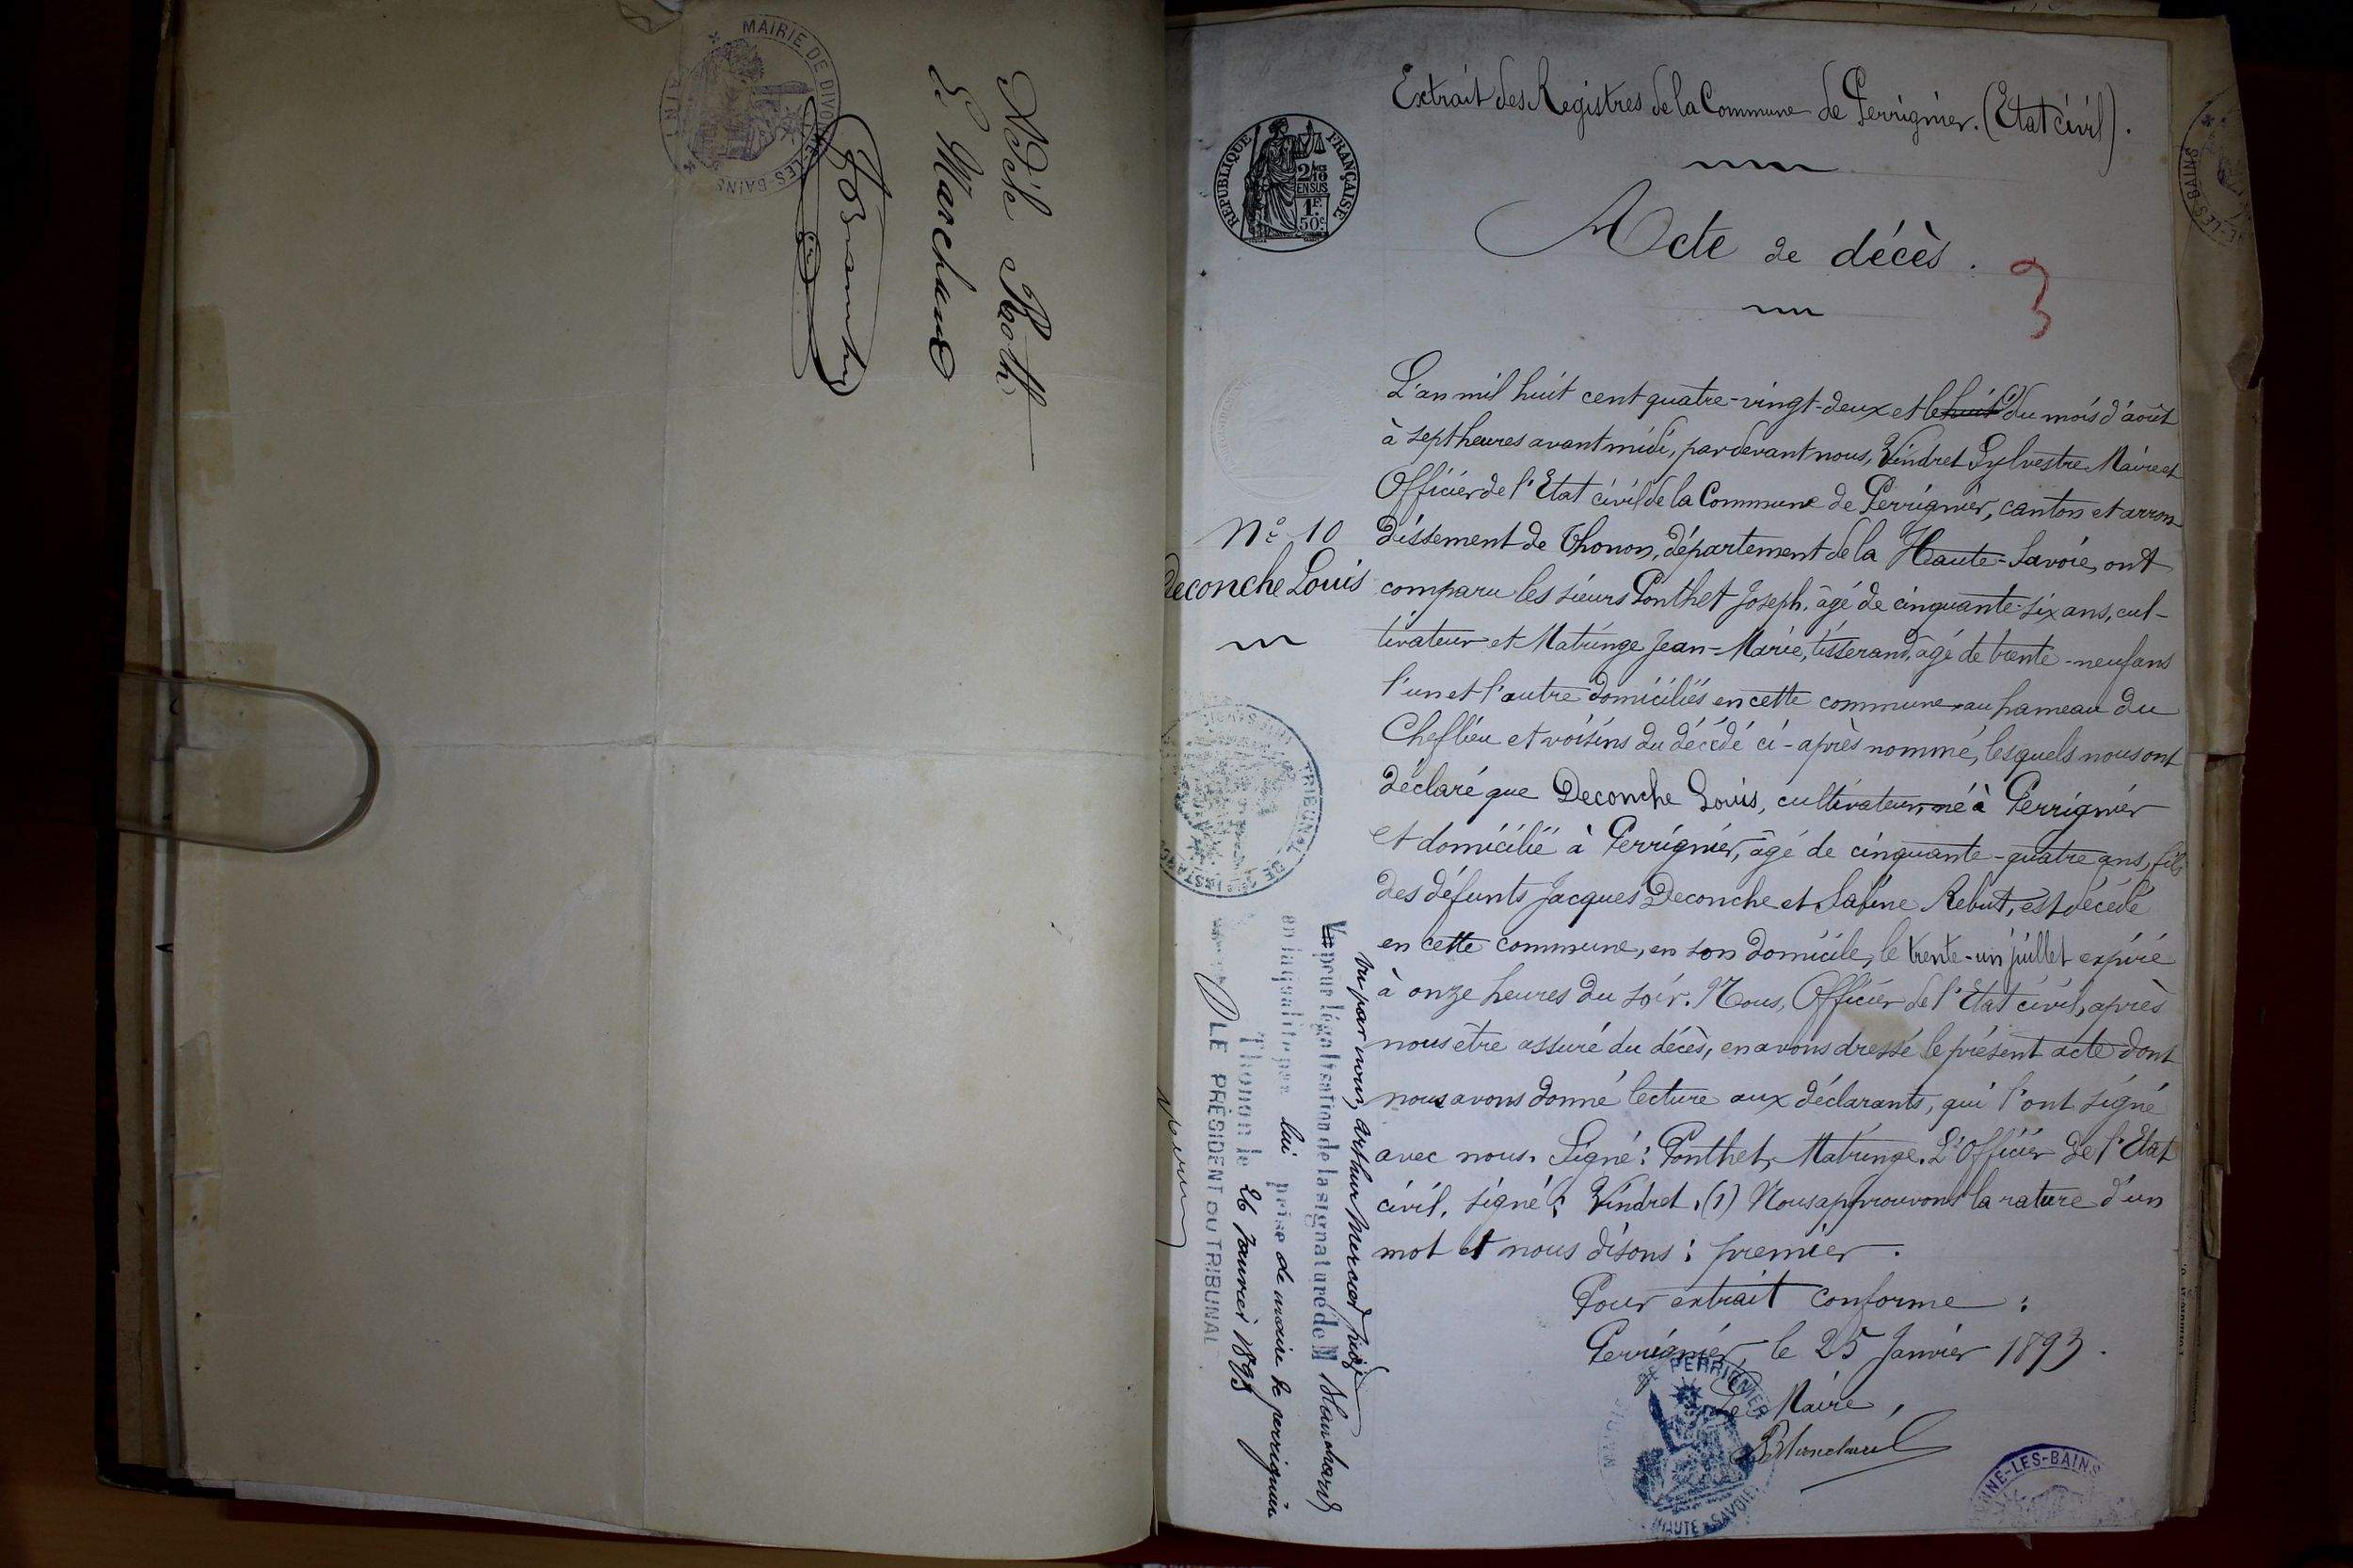 MAIRIE DE DIVONNE-LES-BAINS
(AIN)
Adèle Roth
L. Marchand
Extrait des Registres de la Commune de Perrignier. (Etat civil).
RÉPUBLIQUE FRANÇAISE
2/10
EN SUS
1F
50c
Acte de décès.
3
L'an mil huit cent quatre-vingt-deux et le huit (1) du mois d'août
à sept heures avant midi, par devant nous, Vindret Sylvestre Maire et
Officier de l'Etat civil de la Commune de Perrignier, canton et arron-
N° 10
dissement de Thonon, département de la Haute-Savoie, ont
Deconche Louis
comparu les sieurs Ponthet Joseph, âgé de cinquante-six ans, cul-
tivateur et Matringe Jean-Marie, tisserand, âgé de trente-neuf ans
l'un et l'autre domiciliés en cette commune au hameau du
Cheflieu et voisins du décédé ci-après nommé, lesquels nous ont
déclaré que Deconche Louis, cultivateur, né à Perrignier
et domicilié à Perrignier, âgé de cinquante-quatre ans, fils
des défunts Jacques Deconche et Sabine Rebut, est décédé
en cette commune, en son domicile, le trente-un juillet expiré
à onze heures du soir. Nous, Officier de l'Etat civil, après
nous être assuré du décès, en avons dressé le présent acte dont
nous avons donné lecture aux déclarants, qui l'ont signé
avec nous. Signé: Ponthet, Matringe. L'Officier de l'Etat
civil, signé: Vindret. (1) Nous approuvons la rature d'un
mot et nous disons: premier.
Pour extrait conforme:
Perrignier le 25 Janvier 1893.
Le Maire,
Blanchard
MAIRIE DE PERRIGNIER
HAUTE-SAVOIE
DIVONNE-LES-BAINS
TRIBUNAL DE 1re INSTANCE
Vu par nous, Arthur Mercier juge
Vu pour légalisation de la signature de M Blanchard
en la qualité par lui prise de maire de perrignier
Thonon le 26 Janvier 1893
LE PRÉSIDENT DU TRIBUNAL